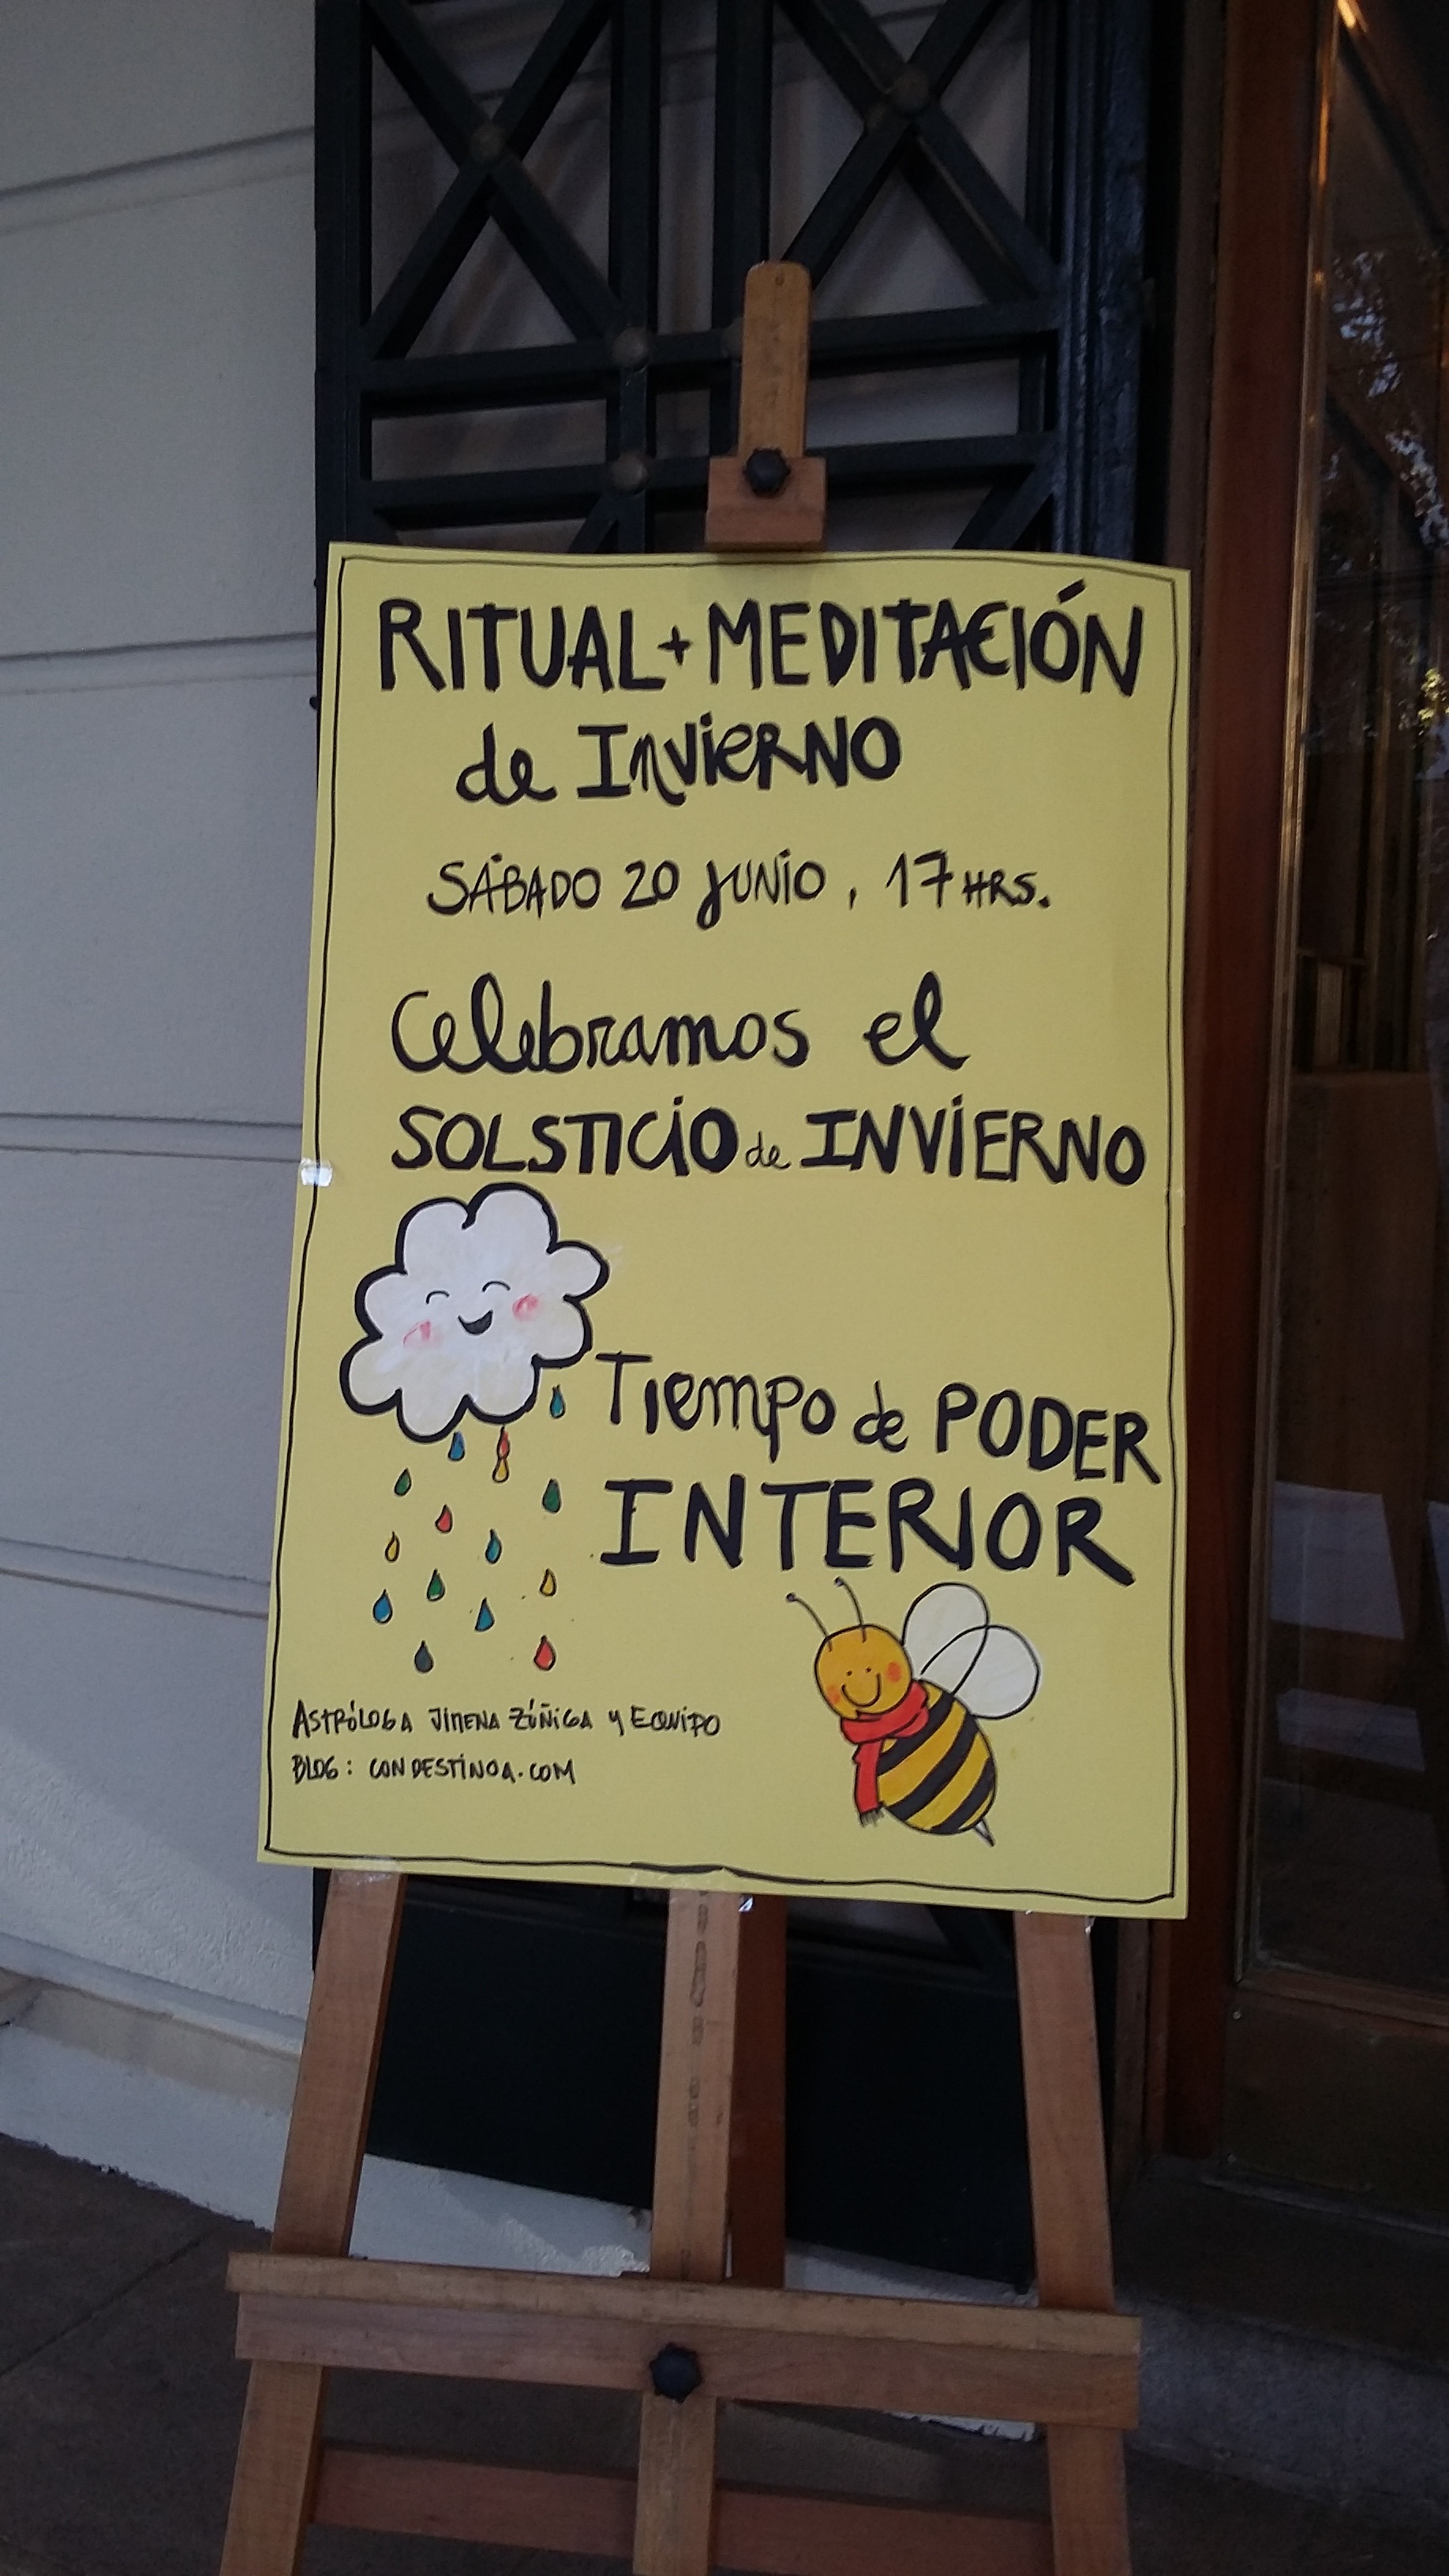 RITUAL + MEDITACIÓN
de INVIERNO
SÁBADO 20 JUNIO, 17 HRS.
Celebramos el
SOLSTICIO de INVIERNO
Tiempo de PODER
INTERIOR
ASTRÓLOGA JIMENA ZÚÑIGA Y EQUIPO
BLOG: CONDESTINOA.COM